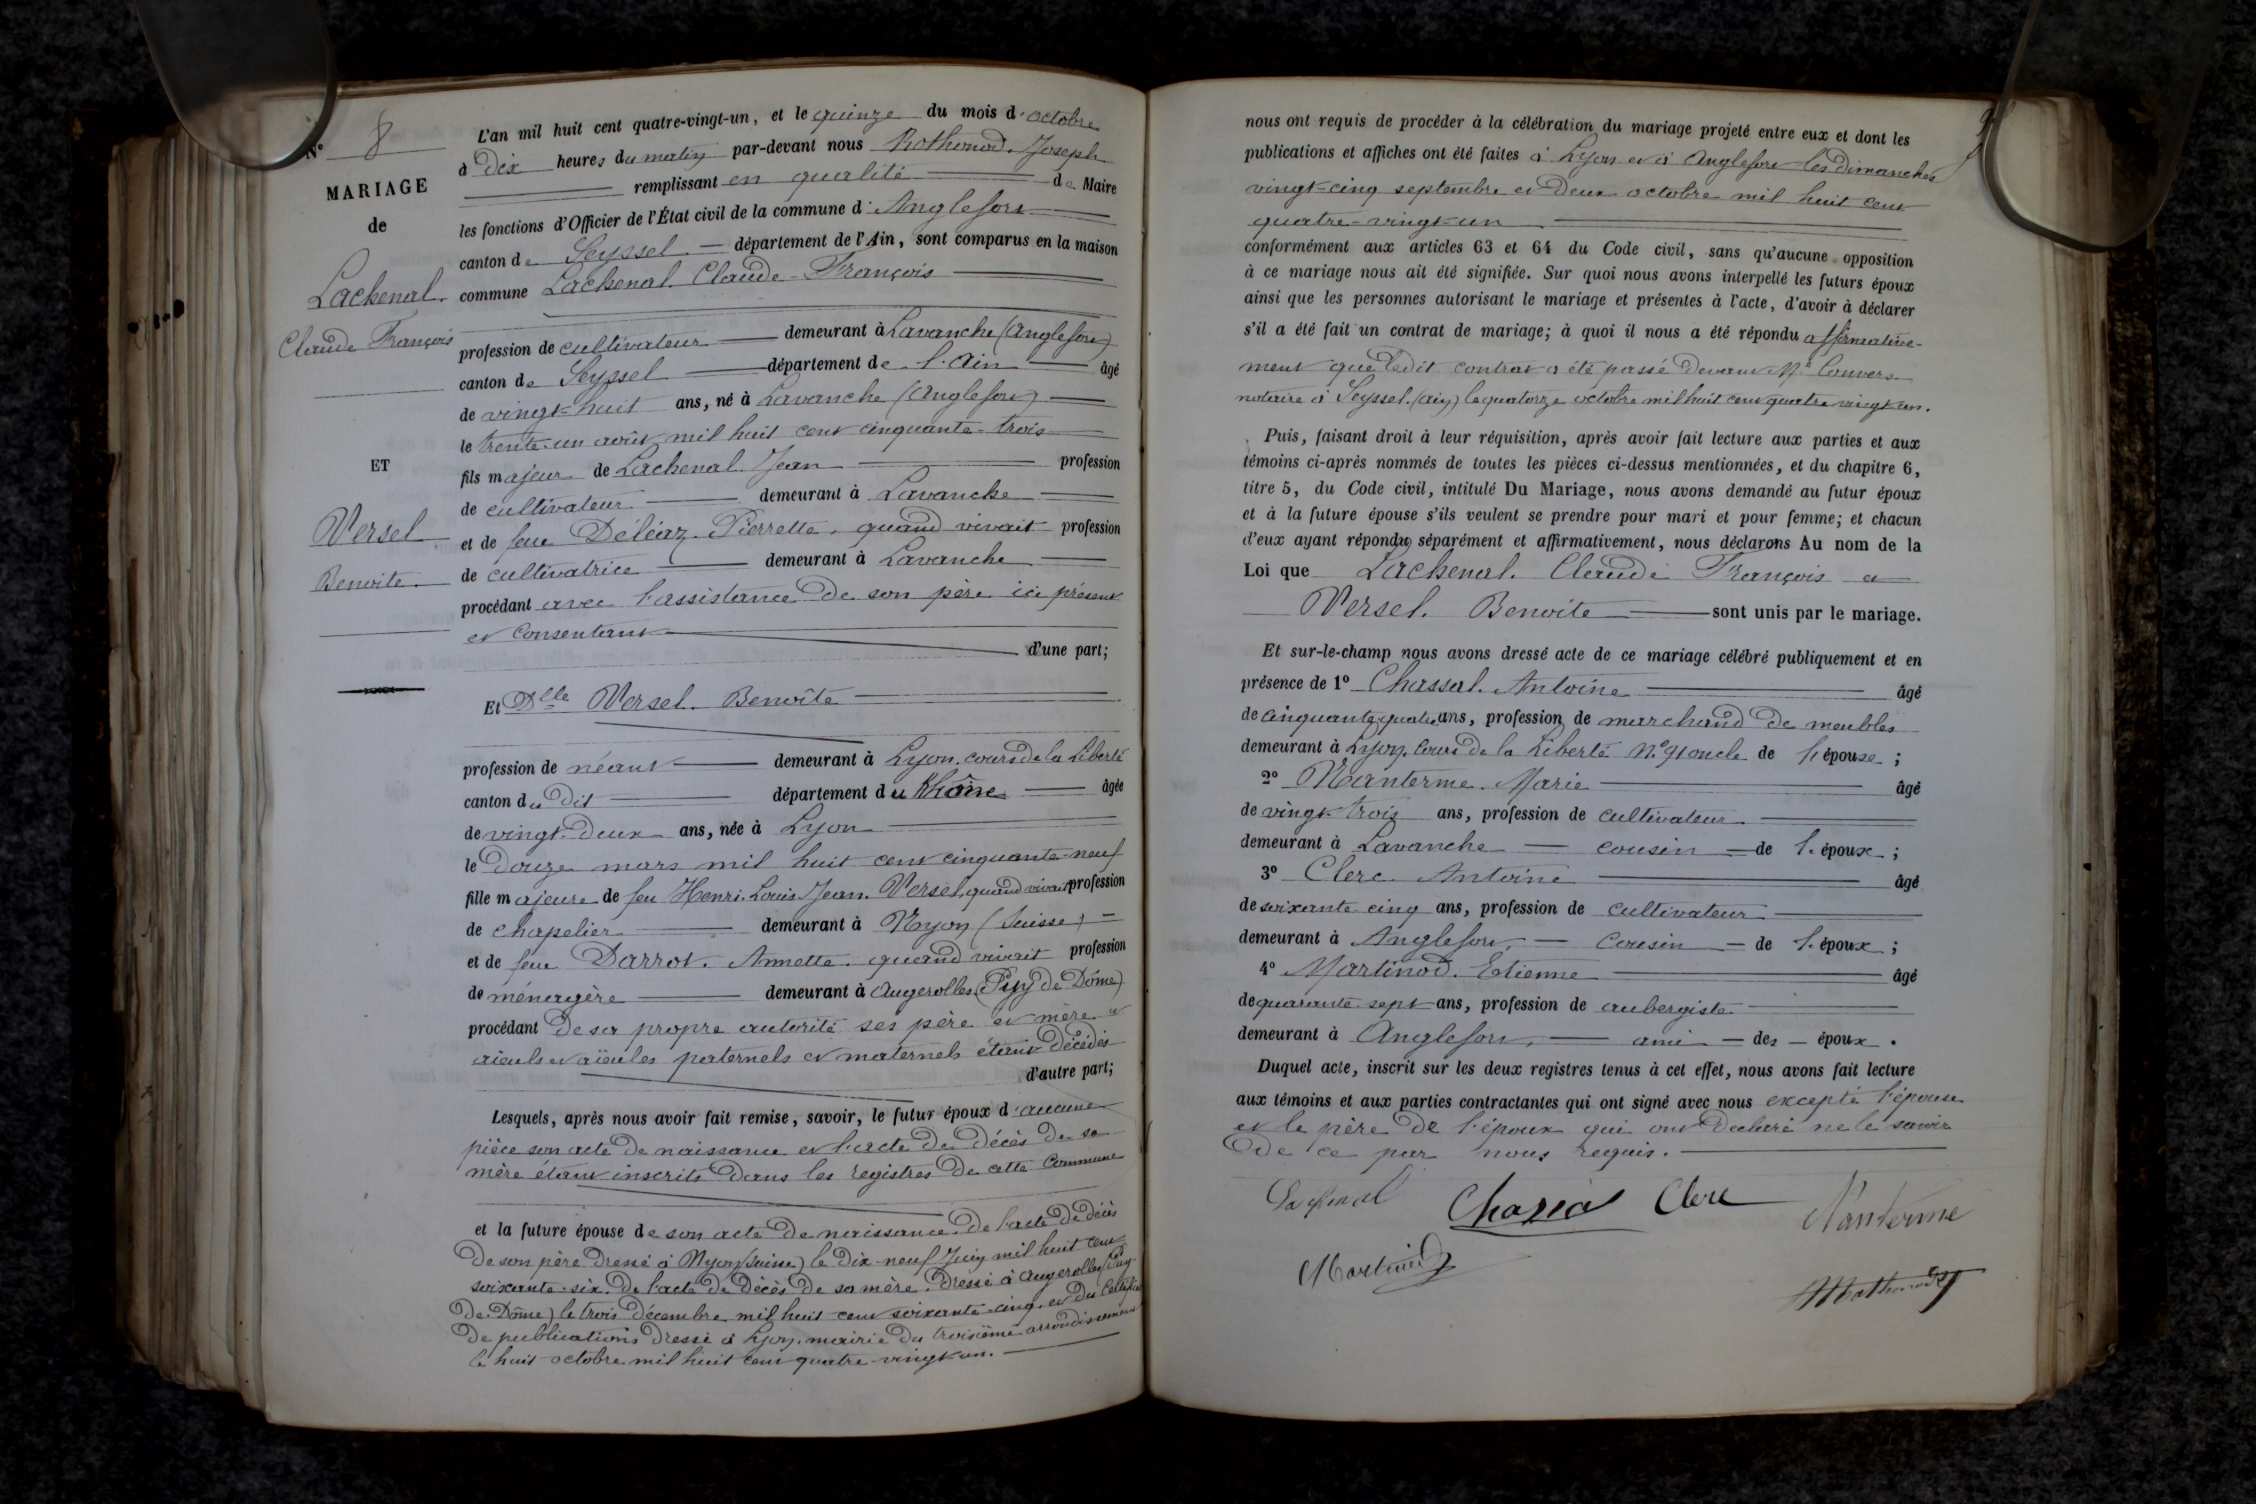 N° 8
MARIAGE
de
Lachenal.
Claude François
ET
Versel
Benoite.
L'an mil huit cent quatre-vingt-un, et le quinze du mois d'octobre
à dix heures du matin par-devant nous Rothonod. Joseph
remplissant en qualité de Maire
les fonctions d'Officier de l'État civil de la commune d'Anglefort
canton de Seyssel département de l'Ain, sont comparus en la maison
commune Lachenal. Claude-François
profession de cultivateur demeurant à Lavanche (Anglefort)
canton de Seyssel département de l'Ain âgé
de vingt-huit ans, né à Lavanche (Anglefort)
le trente-un août mil huit cent cinquante-trois
fils majeur de Lachenal Jean profession
de cultivateur demeurant à Lavanche
et de feue Déléaz. Pierrette. quand vivait profession
de cultivatrice demeurant à Lavanche
procédant avec l'assistance de son père ici présent
et consentant d'une part;
Et Dlle Versel. Benoîte
profession de néant demeurant à Lyon. cours de la Liberté
canton du dit département du Rhône âgée
de vingt-deux ans, née à Lyon
le douze mars mil huit cent cinquante neuf
fille majeure de feu Henri. Louis Jean. Versel. quand vivait profession
de chapelier demeurant à Nyon (Suisse)
et de feue Darrot. Annette. quand vivait profession
de ménagère demeurant à Augerolles (Puy de Dôme)
procédant de sa propre autorité ses père et mère et
aïeuls et aïeules paternels et maternels étant décédés
d'autre part;
Lesquels, après nous avoir fait remise, savoir, le futur époux d'aucune
pièce son acte de naissance et l'acte de décès de sa
mère étant inscrits dans les registres de cette commune
et la future épouse de son acte de naissance. de l'acte de décès
de son père dressé à Nyon (Suisse) le dix-neuf Juin mil huit cent
soixante-six. de l'acte de décès de sa mère. dressé à Augerolles (Puy
de Dôme) le trois décembre mil huit cent soixante-cinq. et du certificat
de publications dressé à Lyon. mairie du troisième arrondissement
le huit octobre mil huit cent quatre-vingt-un.
nous ont requis de procéder à la célébration du mariage projeté entre eux et dont les
publications et affiches ont été faites à Lyon et à Anglefort les dimanches
vingt-cinq septembre et deux octobre mil huit cent
quatre-vingt-un
conformément aux articles 63 et 64 du Code civil, sans qu'aucune opposition
à ce mariage nous ait été signifiée. Sur quoi nous avons interpellé les futurs époux
ainsi que les personnes autorisant le mariage et présentes à l'acte, d'avoir à déclarer
s'il a été fait un contrat de mariage; à quoi il nous a été répondu affirmative-
ment que ledit contrat a été passé devant Me Convers
notaire à Seyssel. (Ain) le quatorze octobre mil huit cent quatre vingt un.
Puis, faisant droit à leur réquisition, après avoir fait lecture aux parties et aux
témoins ci-après nommés de toutes les pièces ci-dessus mentionnées, et du chapitre 6,
titre 5, du Code civil, intitulé Du Mariage, nous avons demandé au futur époux
et à la future épouse s'ils veulent se prendre pour mari et pour femme; et chacun
d'eux ayant répondu séparément et affirmativement, nous déclarons Au nom de la
Loi que Lachenal. Claude François et
Versel. Benoite sont unis par le mariage.
Et sur-le-champ nous avons dressé acte de ce mariage célébré publiquement et en
présence de 1° Chassal. Antoine âgé
de cinquante quatre ans, profession de marchand de meubles
demeurant à Lyon. Cours de la Liberté N° 9 oncle de l'épouse;
2° Nanterme. Marie âgé
de vingt-trois ans, profession de cultivateur
demeurant à Lavanche cousin de l'époux;
3° Clerc Antoine âgé
de soixante cinq ans, profession de cultivateur
demeurant à Anglefort, Cousin de l'époux;
4° Martinod. Etienne âgé
de quarante-sept ans, profession de aubergiste
demeurant à Anglefort, ami des époux.
Duquel acte, inscrit sur les deux registres tenus à cet effet, nous avons fait lecture
aux témoins et aux parties contractantes qui ont signé avec nous excepté l'épouse
et le père de l'époux qui ont déclaré ne le savoir
de ce par nous requis.
Lachenal Clerc Nanterme
Martinod